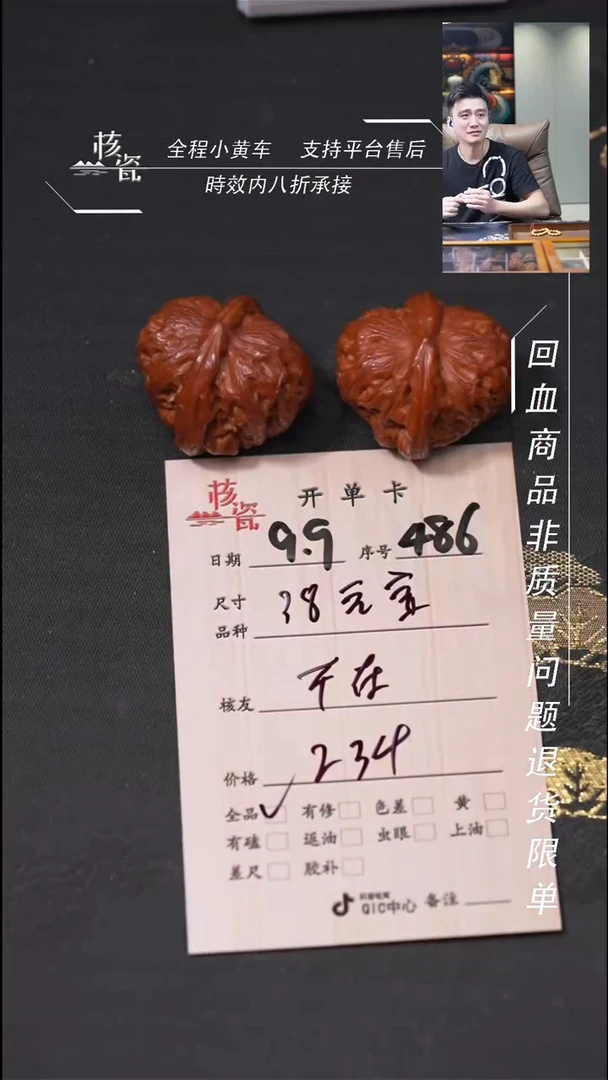 核瓷
全程小黄车 支持平台售后
時效内八折承接
回血商品非质量问题退货限单
核瓷 开单卡
日期 9.9 序号 486
尺寸
品种 38元宝
核友 不在
价格 234
全品✓ 有修 色差 黄
有磕 返油 虫眼 上油
差尺 胶补
QIC中心 备注